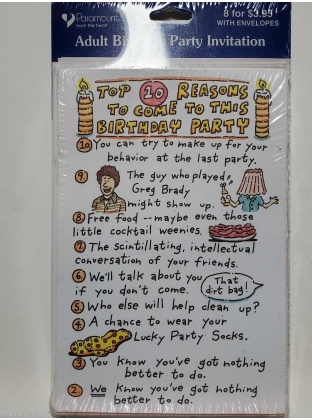 Paramount
from the heart
8 for $3.99
WITH ENVELOPES
Adult Bi Party Invitation
TOP 10 REASONS
TO COME TO THIS
BIRTHDAY PARTY
10 You can try to make up for your
behavior at the last party.
9. The guy who played
Greg Brady
might show up.
8 Free food -- maybe even those
little cocktail weenies.
7 The scintillating, intellectual
conversation of your friends.
6 We'll talk about you
if you don't come.
That
dirt bag!
5 Who else will help clean up?
4 A chance to wear your
Lucky Party Socks.
3 You know you've got nothing
better to do.
2. We know you've got nothing
better to do.